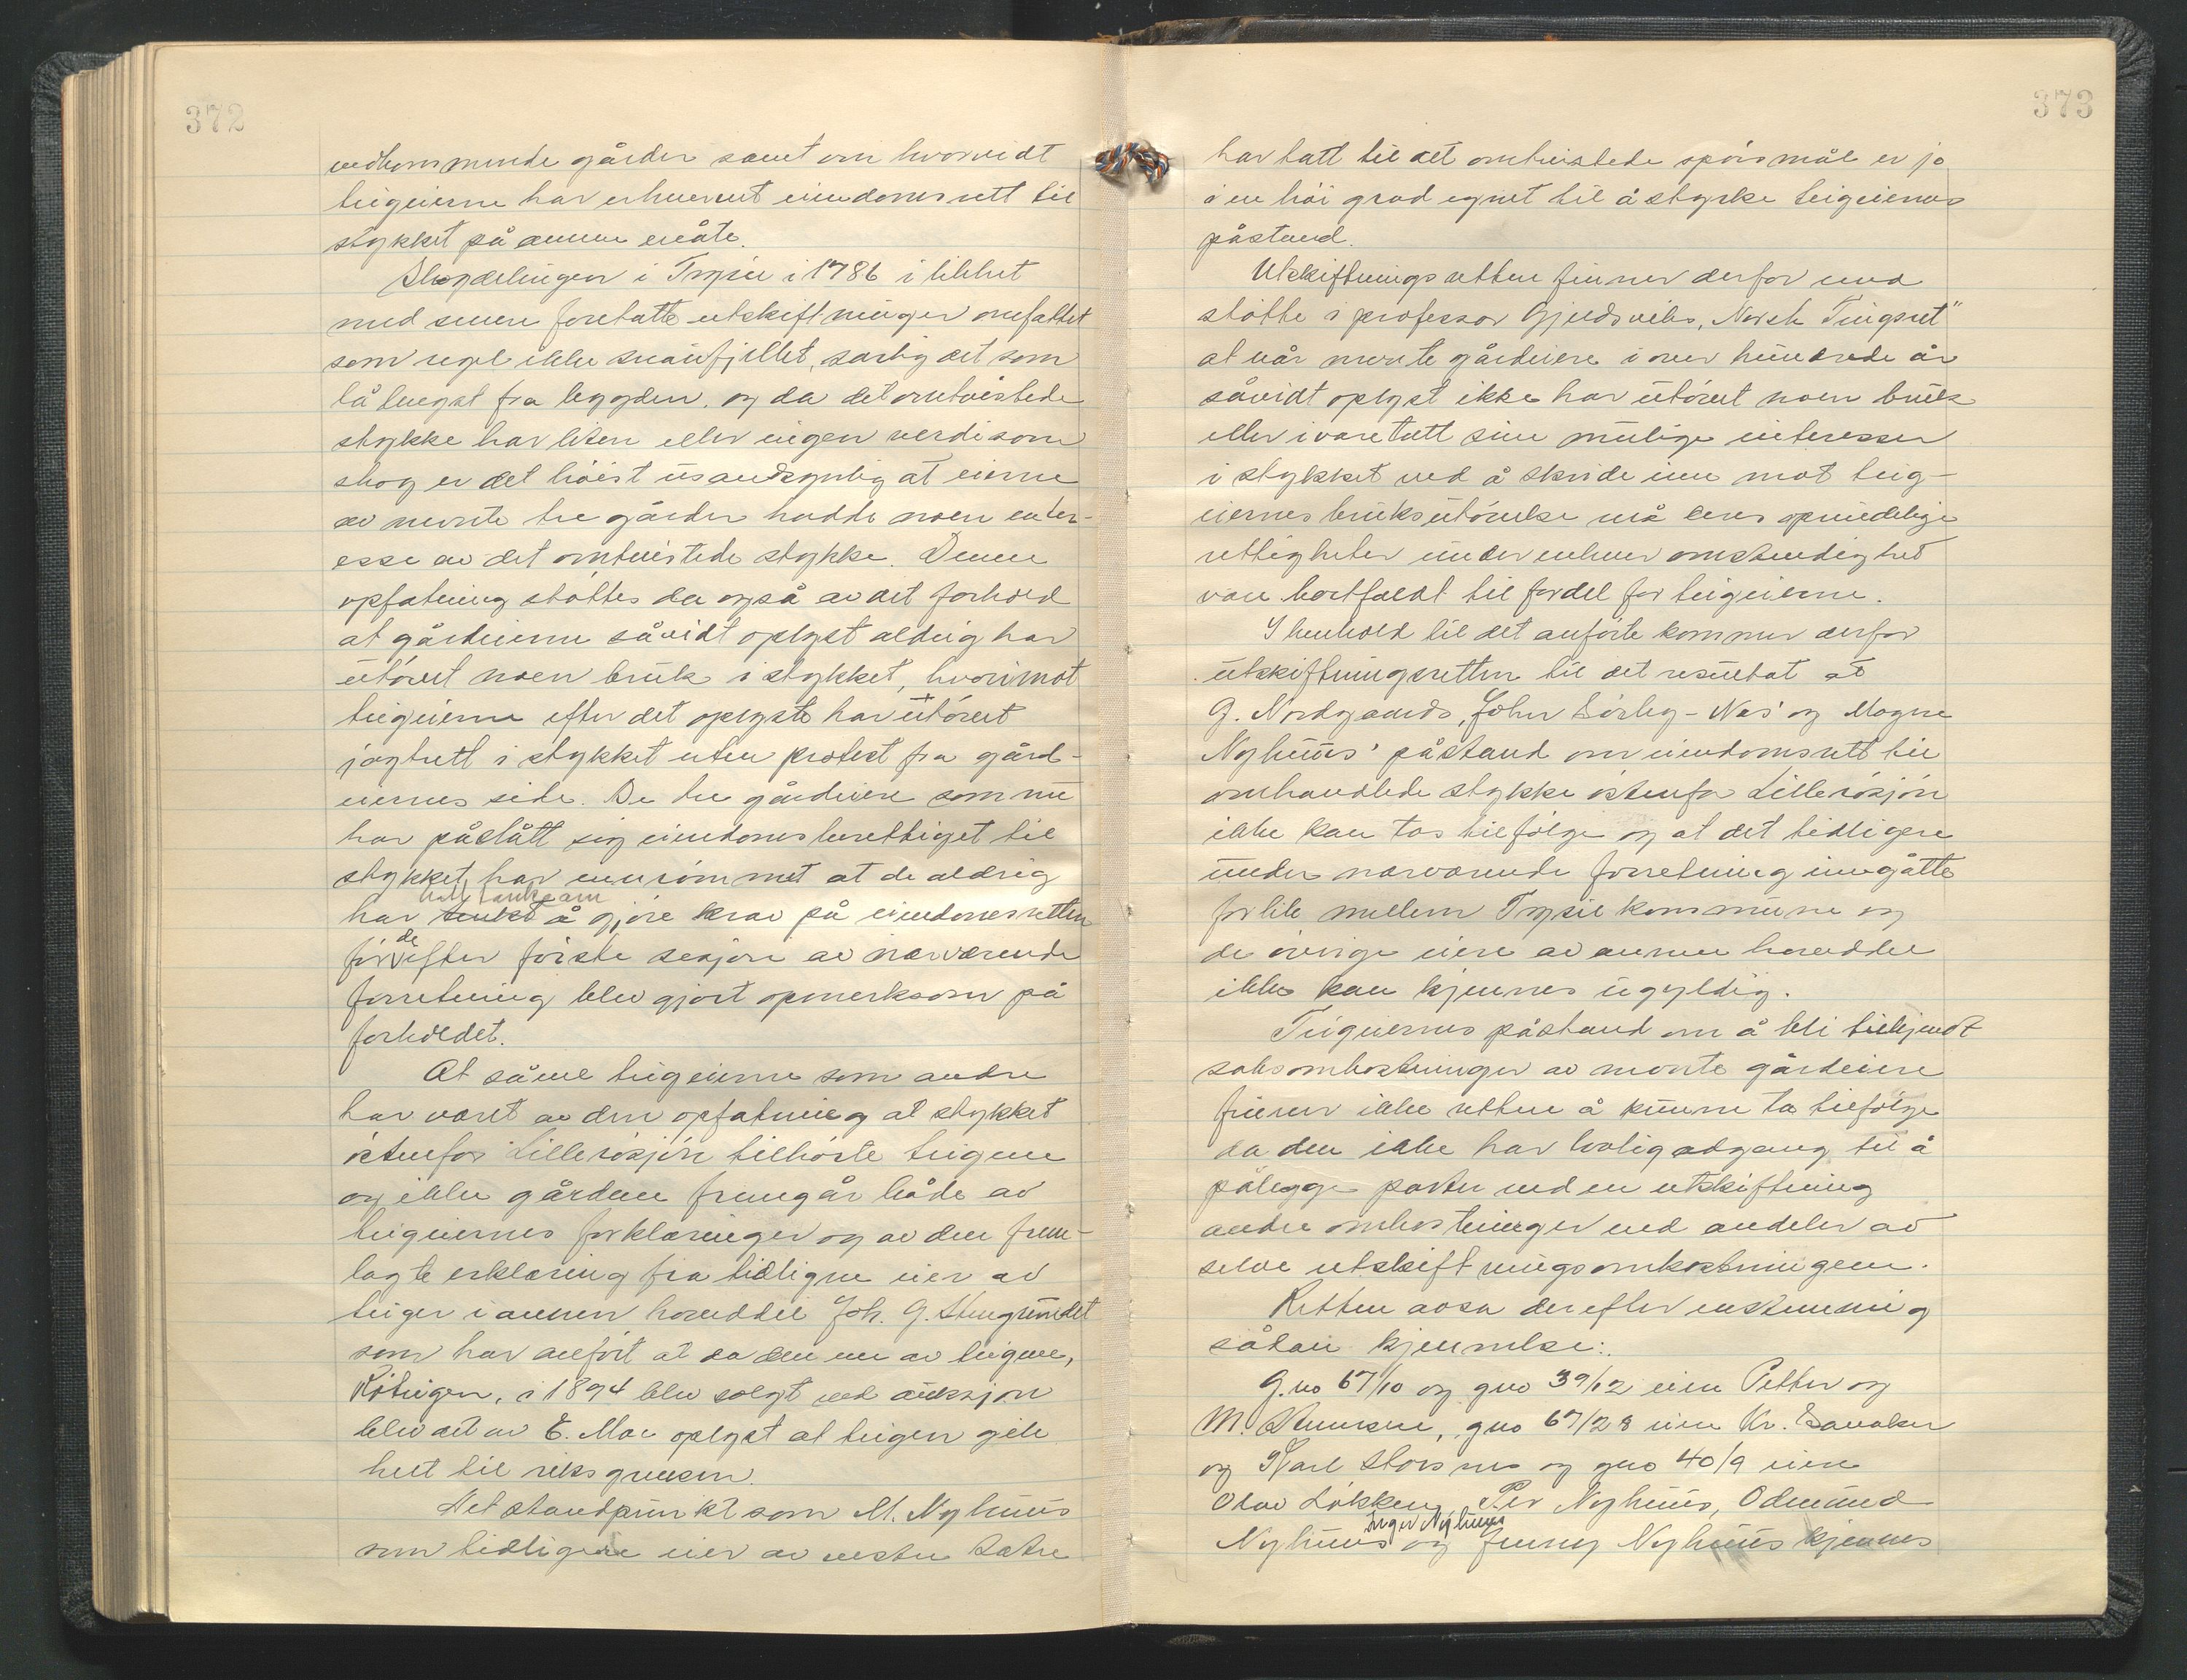 372
vedkommende gårder samt om hvorvidt
teigeierne har erhvervet eiendomsrett til
stykket på annen måte.
Skogdelingen i Trysil i 1786 i likhet
med senere foretatte utskiftninger omfattet
som regel ikke snaufjellet, særlig det som
lå lengst fra bygden, og da det omtvistede
stykke har liten eller ingen verdi som
skog er det høist usandsynlig at eierne
av nevnte tre gårder hadde noen inter-
esse av det omtvistede stykke. Denne
opfatning støttes da også av det forhold
at gårdeierne såvidt oplyst aldrig har
utøvet noen bruk i stykket, hvorimot
teigeierne efter det oplyste har utøvet
jagtrett i stykket uten protest fra gård-
eiernes side. De tre gårdeiere som nu
har påstått sig eiendomsberettiget til
stykket har innrømmet at de aldrig
hatt tanke om
har tenkt å gjøre krav på eiendomsretten
de
før efter første sesjon av nærværende
forretning blev gjort opmerksom på
forholdet.
At såvel teigeierne som andre
har været av den opfatning at stykket
østenfor Lillerøsjøn tilhørte teigene
og ikke gårdene fremgår både av
teigeiernes forklaringer og av den frem-
lagte erklæring fra tidligere eier av
teiger i annen hoveddel Joh. G. Stengrundet
som har anført at da den ene av teigene,
Røteigen, i 1894 blev solgt ved auksjon
blev det av E. Moe oplyst at teigen gikk
helt til riksgrensen.
Det standpunkt som M. Nyhuus
som tidligere eier av vestre Sætre
373
har tatt til det omtvistede spørsmål er jo
i en høi grad egnet til å styrke teigeiernes
påstand.
Utskiftningsretten finner derfor med
støtte i professor Gjelsviks „Norsk Tingsret"
at når nevnte gårdeiere i over hundrede år
såvidt oplyst ikke har utøvet noen bruk
eller ivaretatt sine mulige interesser
i stykket ved å skride inn mot teig-
eiernes bruksutøvelse må deres oprindelige
rettigheter under enhver omstendighet
være bortfaldt til fordel for teigeierne.
I henhold til det anførte kommer derfor
utskiftningsretten til det resultat at
G. Nordgaards, John Sørby-Næs' og Magne
Nyhuus' påstand om eiendomsrett til
omhandlede stykke østenfor Lillerøsjøn
ikke kan tas tilfølge og at det tidligere
under nærværende forretning inngåtte
forlik mellem Trysil kommune og
de øvrige eiere av annen hoveddel
ikke kan kjennes ugyldig.
Teigeiernes påstand om å bli tilkjendt
saksomkostninger av nevnte gårdeiere
finner ikke retten å kunne ta tilfølge
da den ikke har lovlig adgang til å
pålegge parter ved en utskiftning
andre omkostninger end andeler av
selve utskiftningsomkostningene.
Retten avsa derefter enstemmig
sådan kjennelse:
G.no 67/10 og gno 39/12 eiere Petter og
M. Stemsrud, gno 67/28 eiere Kr.
og Karl Storsnes og gno 40/9 eiere
Olav Løkken, Per Nyhuus, Odmund
Inger Nyhuus
Nyhuus og Jenny Nyhuus kjennes